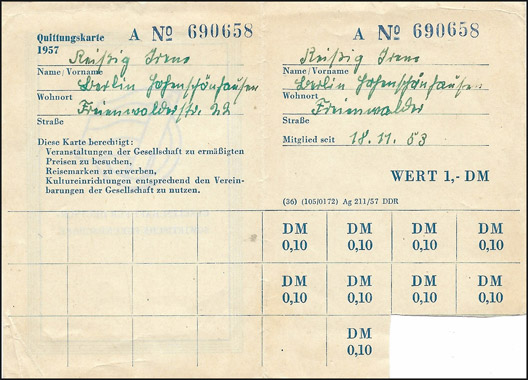 Quittungskarte A № 690658
1957
Reißig Irene
Name/Vorname
Berlin Hohenschönhausen
Wohnort
Freienwalderstr. 22
Straße
Diese Karte berechtigt:
Veranstaltungen der Gesellschaft zu ermäßigten
Preisen zu besuchen,
Reisemarken zu erwerben,
Kultureinrichtungen entsprechend den Verein-
barungen der Gesellschaft zu nutzen.
A № 690658
Reißig Irene
Name/Vorname
Berlin Hohenschönhausen
Wohnort
Freienwalder
Straße
Mitglied seit 18.11.53
WERT 1,- DM
(36) (105/0172) Ag 211/57 DDR
DM DM DM DM
0,10 0,10 0,10 0,10
DM DM DM DM
0,10 0,10 0,10 0,10
DM
0,10